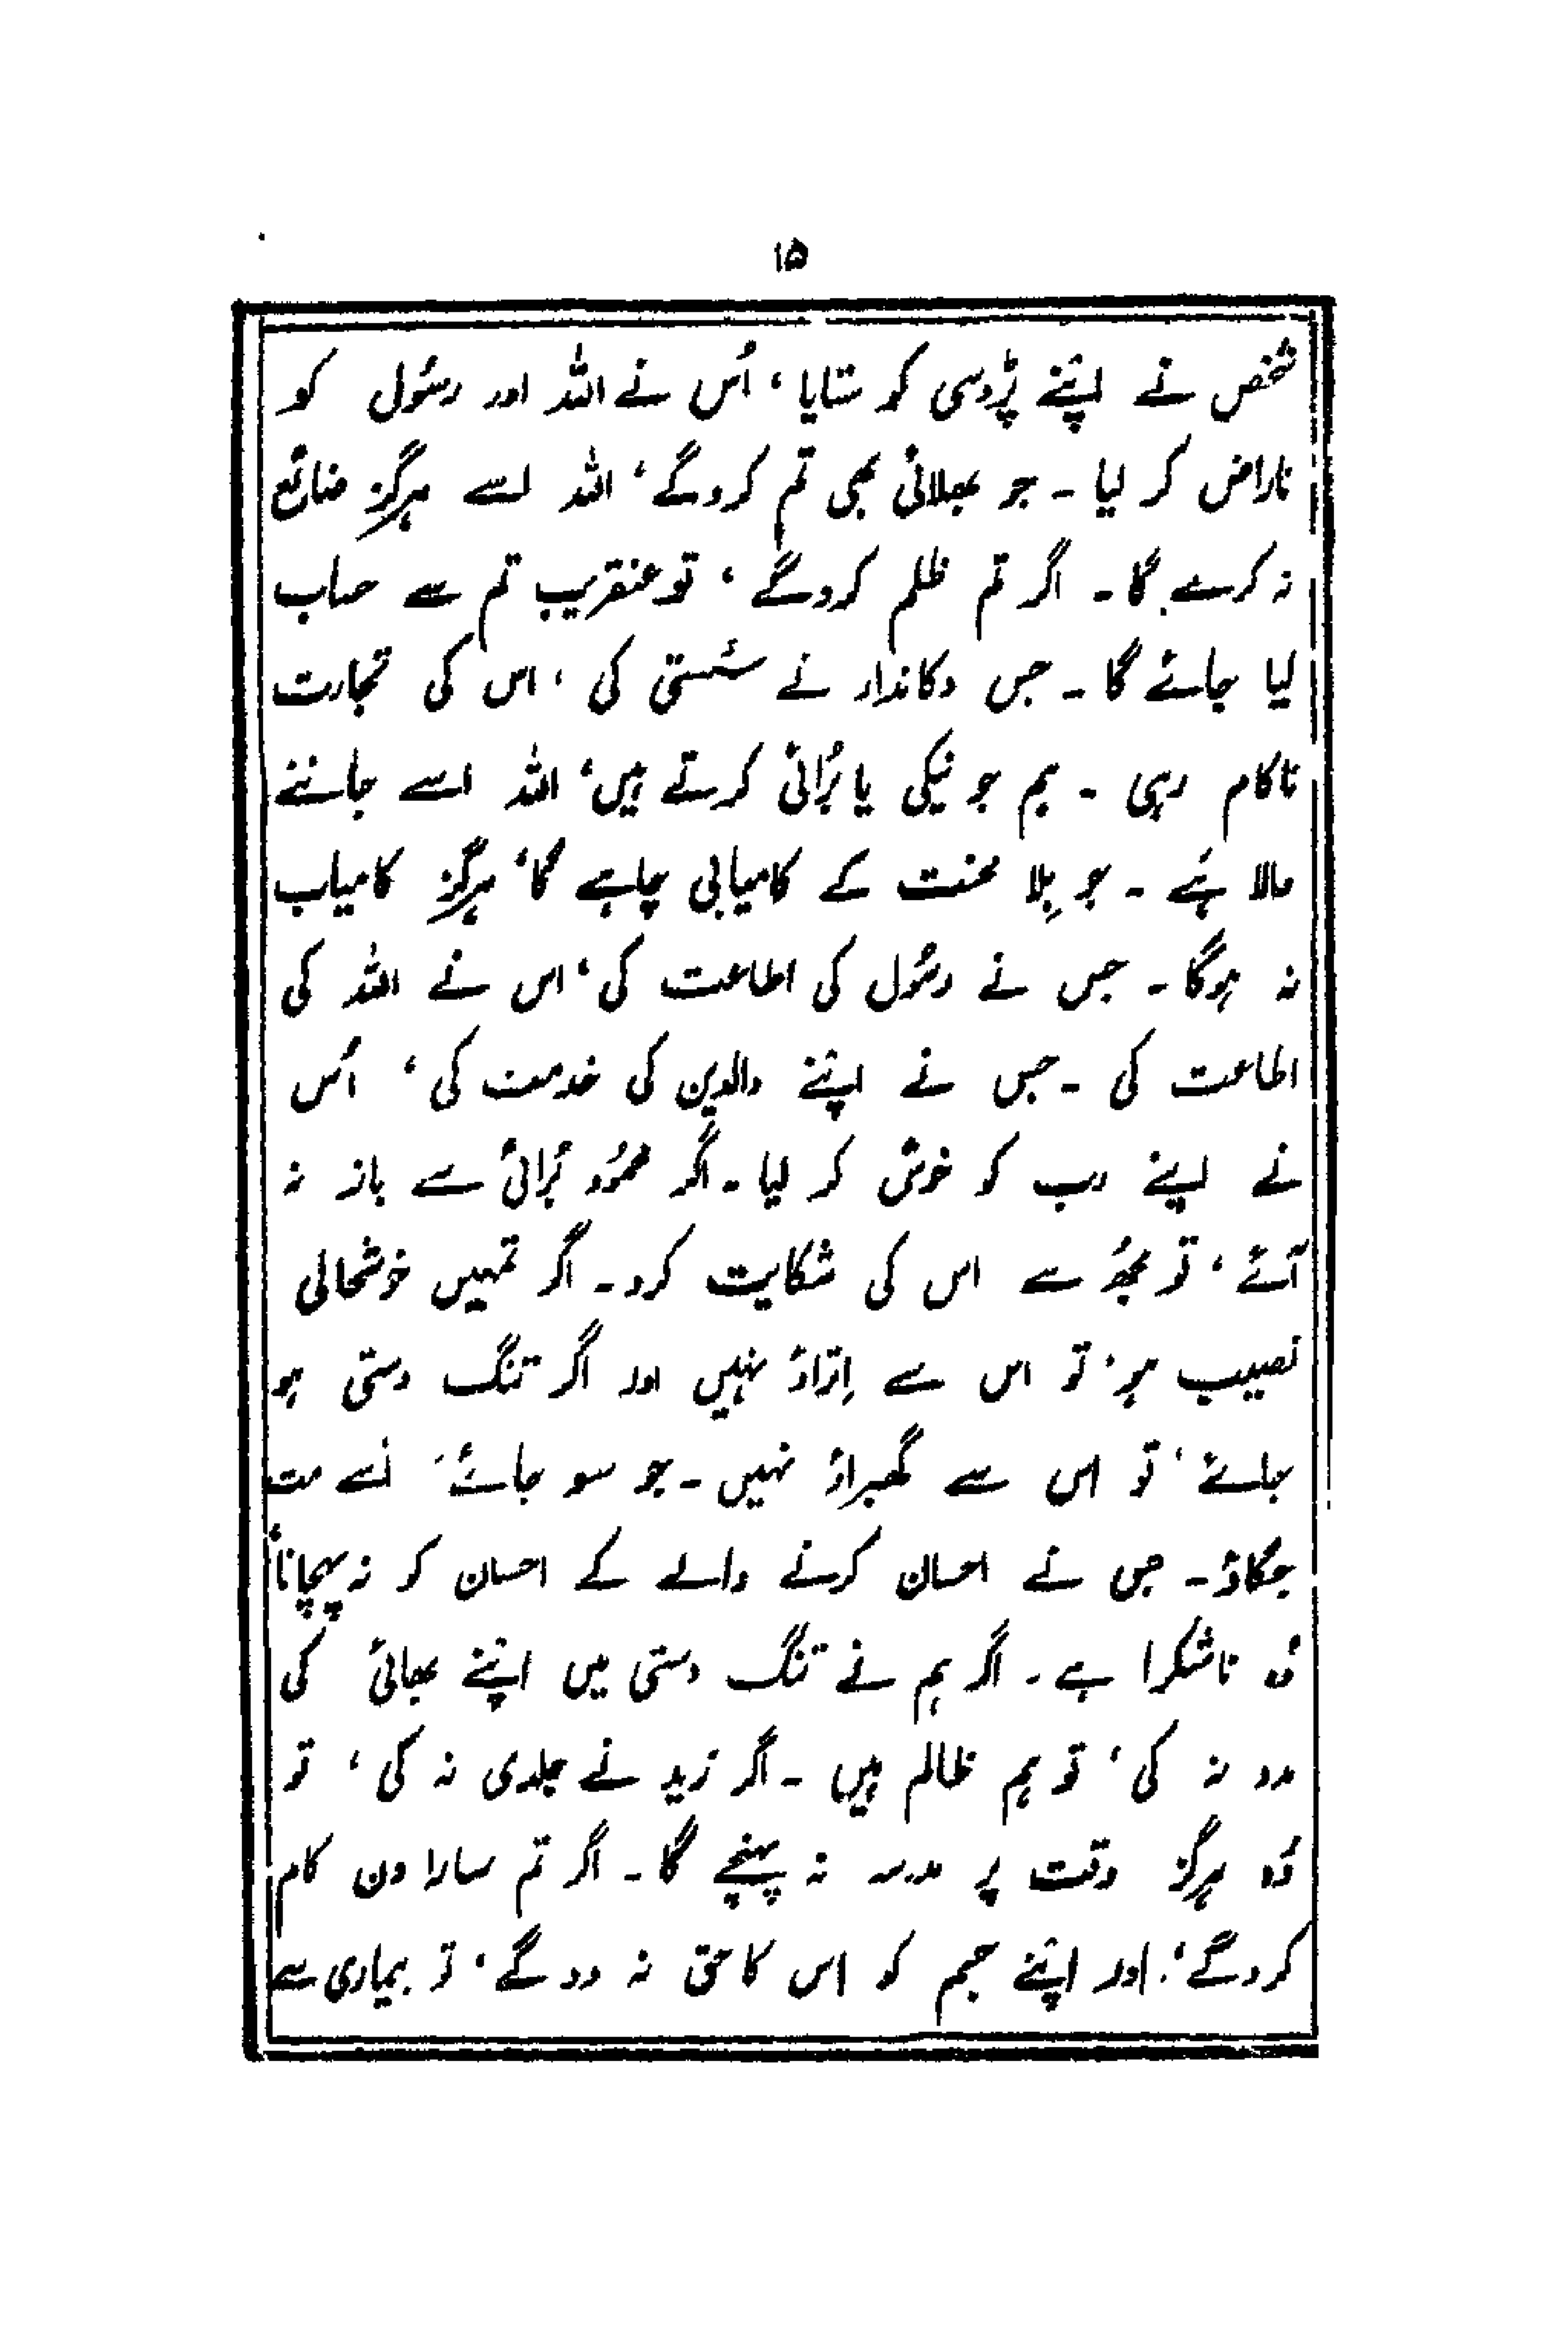 ۱۵
شخص نے اپنے پڑوسی کو ستایا، اُس نے اللہ اور رسُول کو
ناراض کر لیا۔ جو بھلائی بھی تم کروگے، اللہ اسے ہرگز ضائع
نہ کرے گا۔ اگر تم ظلم کروگے، تو عنقریب تم سے حساب
لیا جائے گا۔ جس دکاندار نے سُستی کی، اس کی تجارت
ناکام رہی۔ ہم جو نیکی یا بُرائی کرتے ہیں، اللہ اسے جاننے
والا ہَے۔ جو بِلا محنت کے کامیابی چاہے گا، ہرگز کامیاب
نہ ہوگا۔ جس نے رسُول کی اطاعت کی، اس نے اللہ کی
اطاعت کی۔ جس نے اپنے والدین کی خدمت کی، اُس
نے اپنے رب کو خوش کر لیا۔ اگر محمُود بُرائی سے باز نہ
آئے، تو مجھُ سے اس کی شکایت کرو۔ اگر تمہیں خوشحالی
نصیب ہو، تو اس سے اِتراؤ نہیں اور اگر تنگ دستی ہو
جائے، تو اس سے گھبراؤ نہیں۔ جو سو جائے، اُسے مت
جگاؤ۔ جس نے احسان کرنے والے کے احسان کو نہ پہچانا،
وُہ ناشکرا ہے۔ اگر ہم نے تنگ دستی میں اپنے بھائی کی
مدد نہ کی، تو ہم ظالم ہیں۔ اگر زید نے جلدی نہ کی، تو
وُہ ہرگز وقت پر مدرسہ نہ پہنچے گا۔ اگر تم سارا دن کام
کروگے، اور اپنے جسم کو اس کا حق نہ دوگے، تو بیماری سے